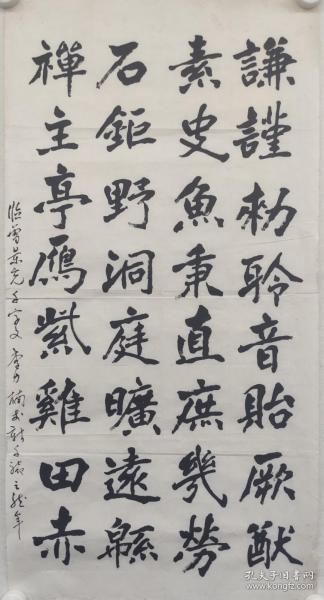 謙謹勅聆音貽厥猷
素史魚秉直庶幾勞
石鉅野洞庭曠遠緜
禪主亭雁紫雞田赤
臨 千字文 之龍年
孔夫子旧书网